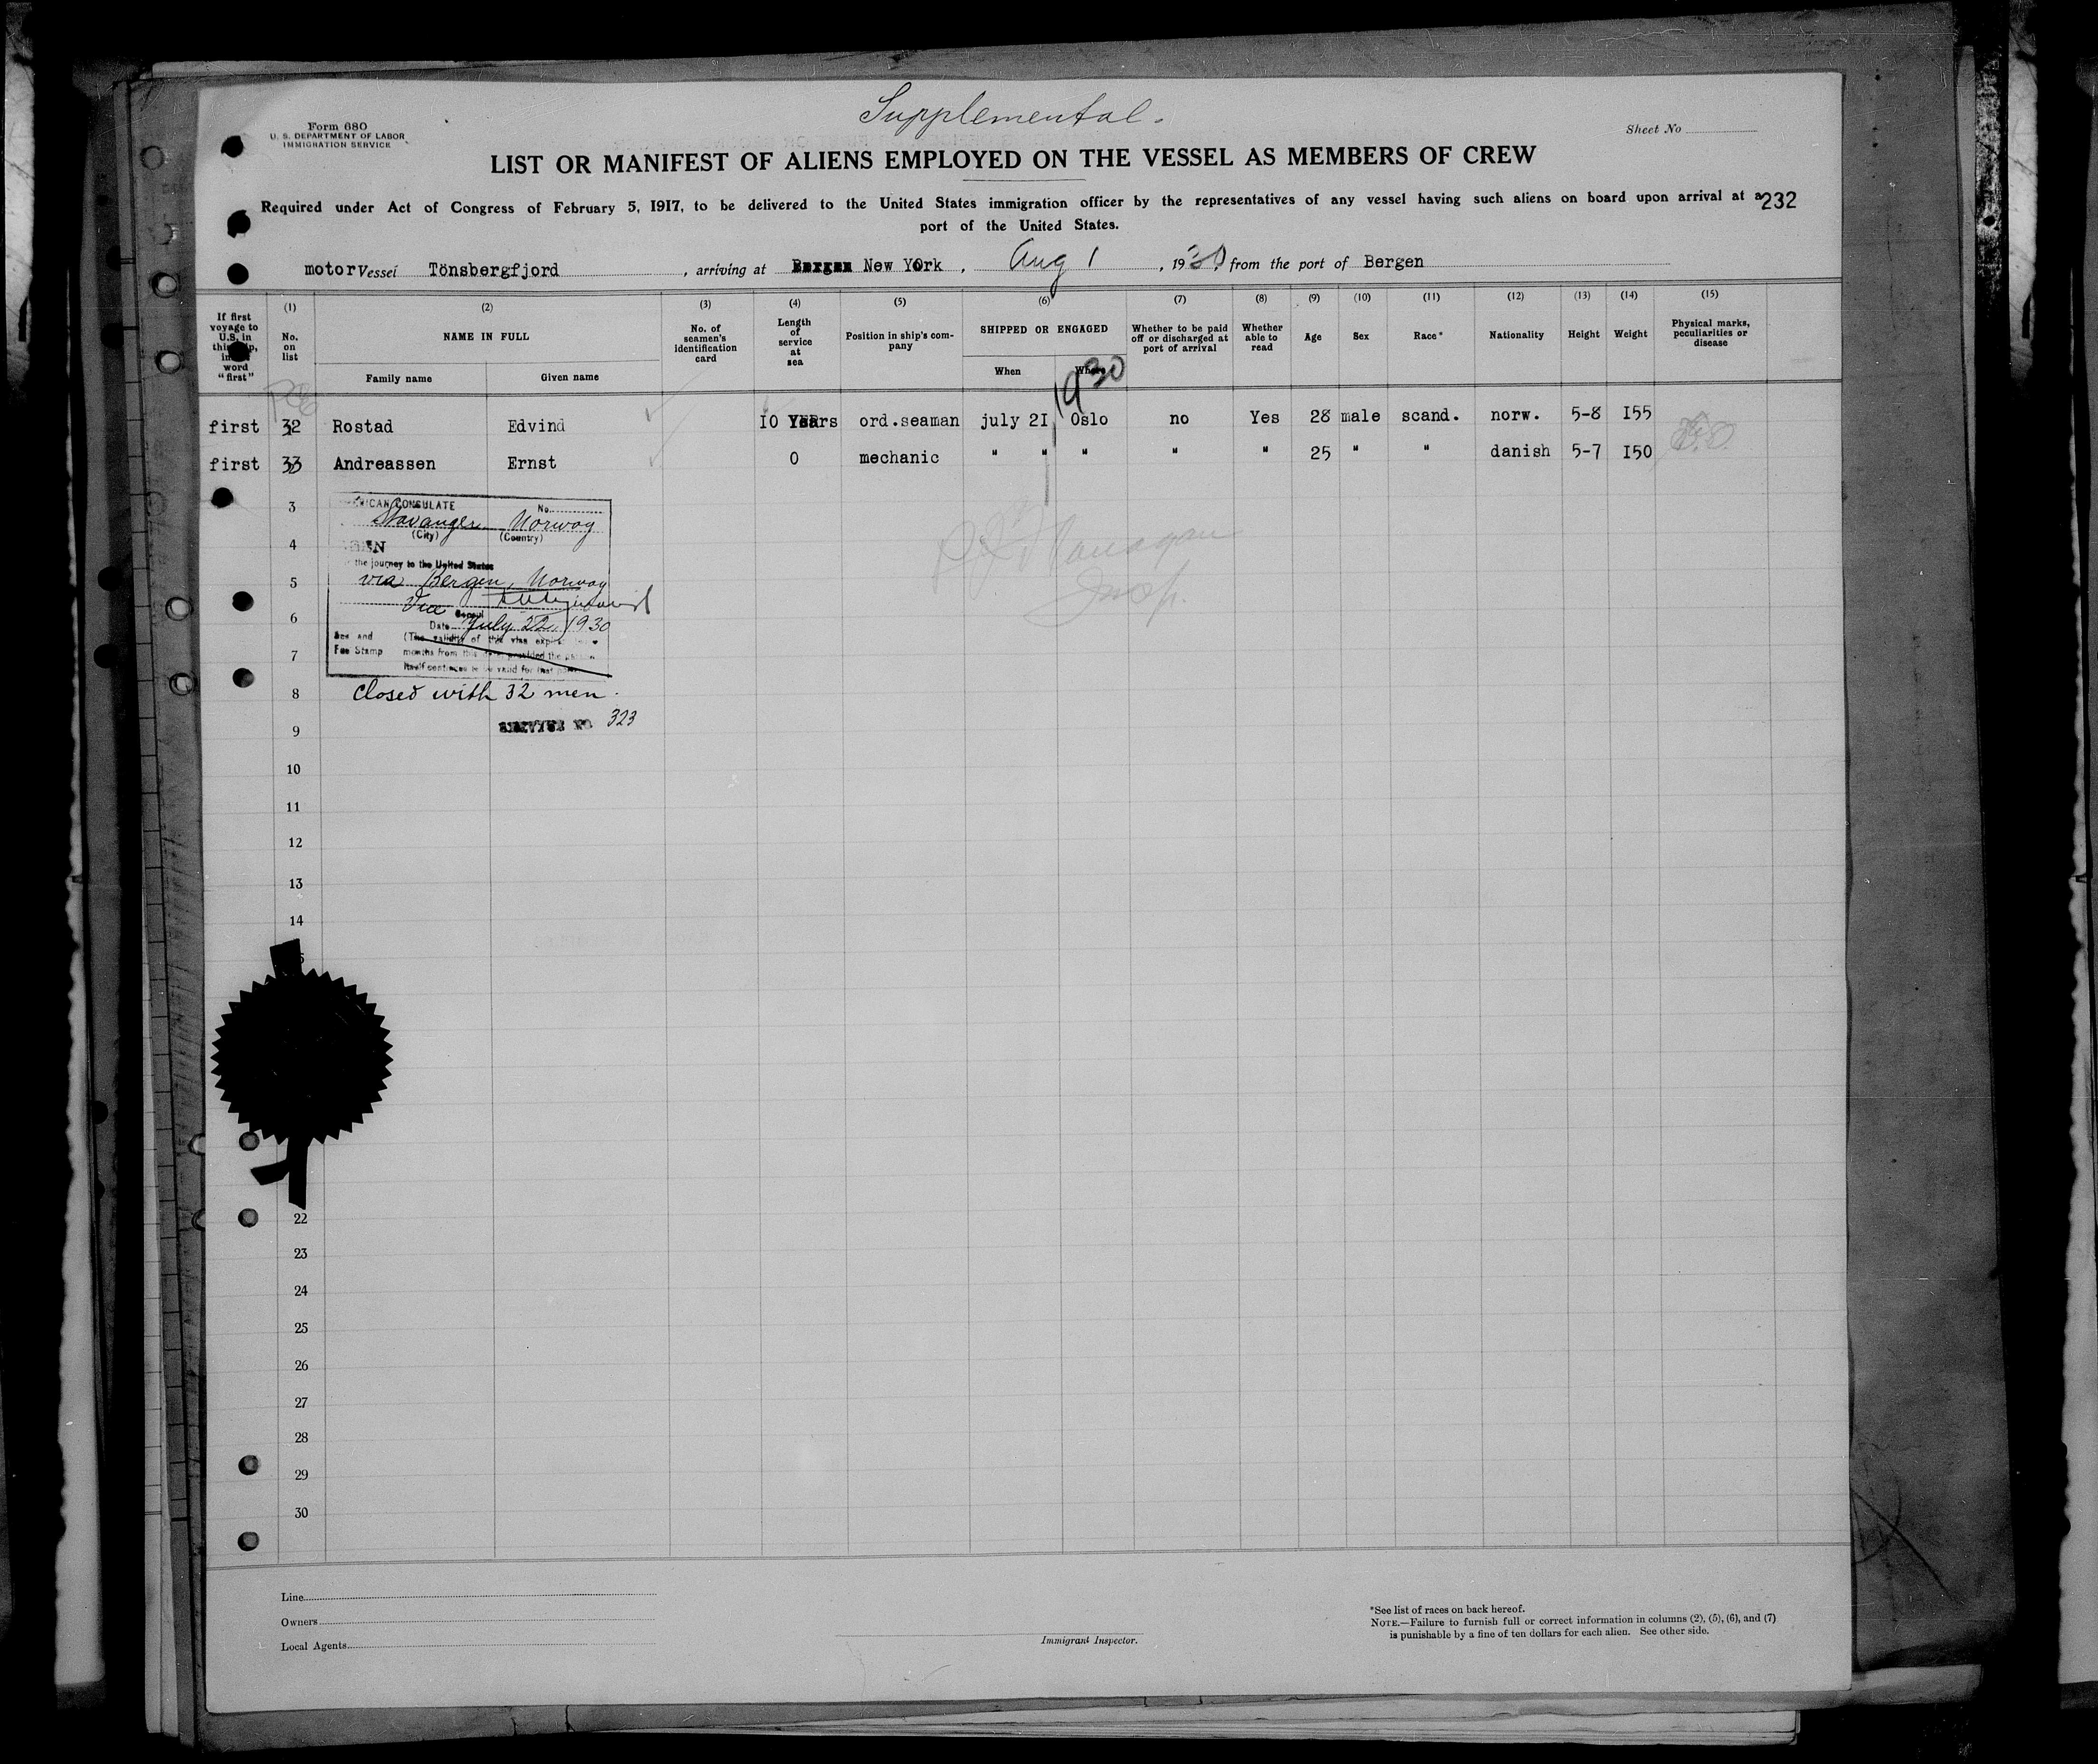 Supplemental.
Form 680
U. S. DEPARTMENT OF LABOR
IMMIGRATION SERVICE
Sheet No
LIST OR MANIFEST OF ALIENS EMPLOYED ON THE VESSEL AS MEMBERS OF CREW
Required under Act of Congress of February 5, 1917, to be delivered to the United States immigration officer by the representatives of any vessel having such aliens on board upon arrival at a
232
port of the United States.
motor Vessel Tönsbergfjord , arriving at Bergen New York , Aug 1 , 1930, from the port of Bergen
(1) (2) (3) (4) (5) (6) (7) (8) (9) (10) (11) (12) (13) (14) (15)
If first voyage to U.S. in word "first"
No. on list
NAME IN FULL
Family name
Given name
No. of seamen's identification card
Length of service at sea
Position in ship's company
SHIPPED OR ENGAGED
When
Where
1930
Whether to be paid off or discharged at port of arrival
Whether able to read
Age
Sex
Race*
Nationality
Height
Weight
Physical marks, peculiarities or disease
first 32 Rostad Edvind 10 Years ord.seaman july 21 Oslo no Yes 28 male scand. norw. 5-8 155
first 33 Andreassen Ernst 0 mechanic " " " " " 25 " " danish 5-7 150
3
CONSULATE No.
Stavanger Norway
(City) (Country)
4
the journey to the United States
5
via Bergen, Norway
Vice Consul
6
Date July 22, 1930
(The validity of this visa
7
Fee Stamp
months from this provided the
valid for that
8 closed with 32 men.
9 SERVICE NO 323
10
11
12
13
14
22
23
24
25
26
27
28
29
30
Line
Owners
Local Agents
Immigrant Inspector.
*See list of races on back hereof.
NOTE.—Failure to furnish full or correct information in columns (2), (5), (6), and (7)
is punishable by a fine of ten dollars for each alien. See other side.